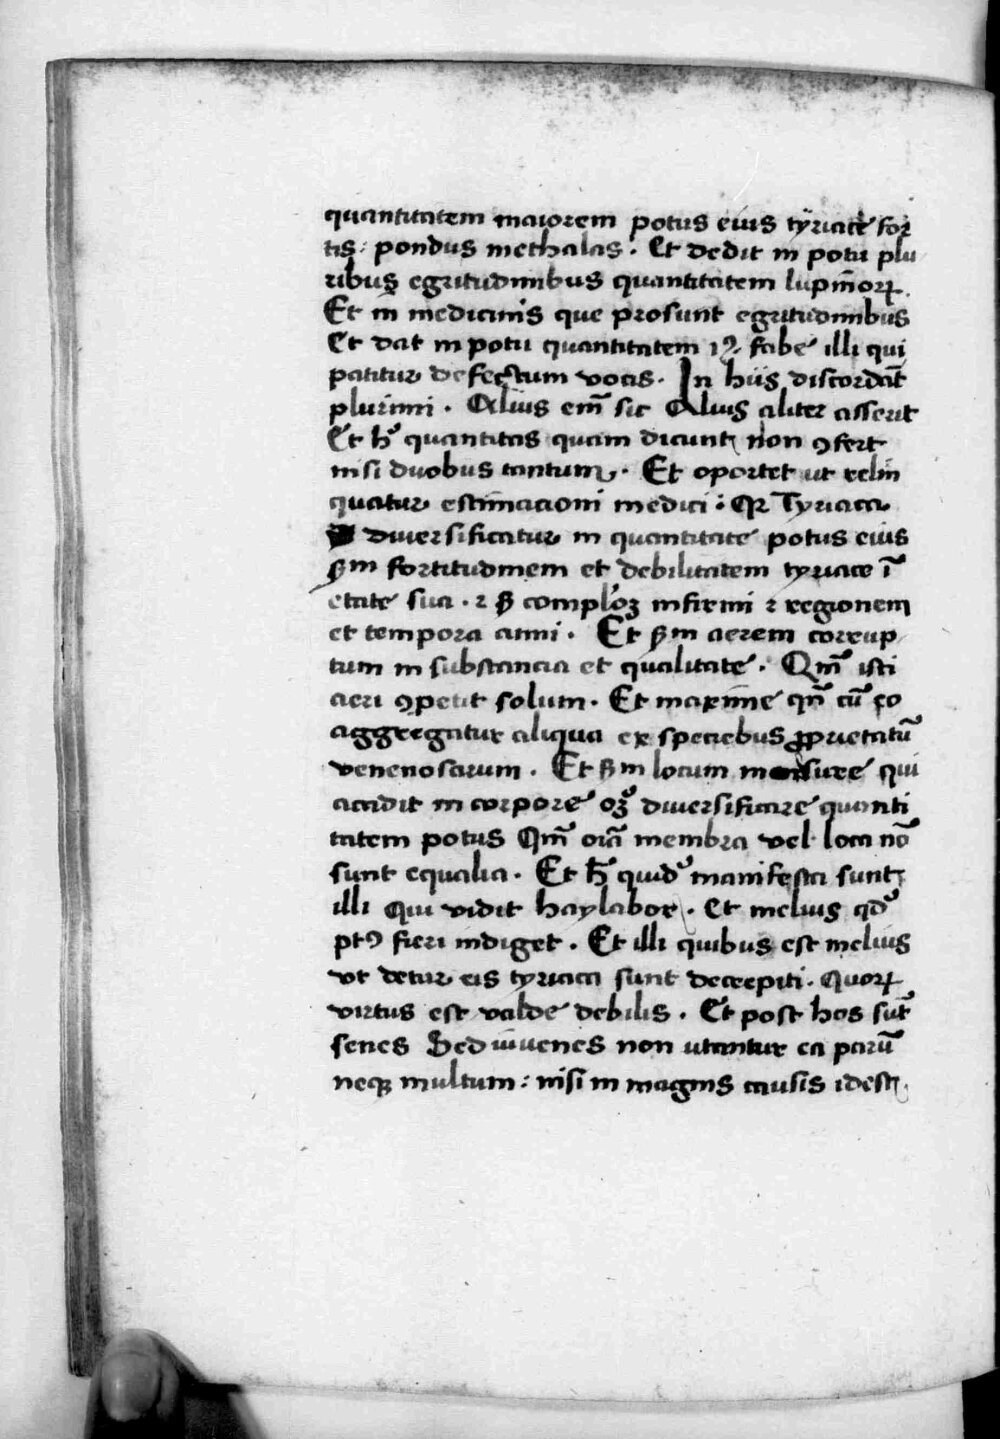 quantitatem maiorem potus eius tyriace for
tis : pondus methalas . Et dedit in potu plu
ribus egritudinibus quantitatem lupīnorꝝ .
Et in medicinis que prosunt egritudinibus
Et dat in potu quantitatem fabe illi qui
patitur defectum vocis . In hiis discordāt
plurimi . Alius em̄ sic Alius aliter asserit
Et h̄ quantitas quam dicunt non ꝯfert
nisi duobus tantum . Et oportet ut relin
quatur estimacioni medici : Qr Tyriaca
diuersificatur in quantitate potus eius
ẜm fortitudinem et debilitatem tyriace ī
etate sua . ⁊ ẜ complōꝫ infirmi ⁊ regionem
et tempora anni . Et ẜm aerem corrup
tum in substancia et qualitate . Qm̄ isti
aeri ꝯpetit solum . Et maxime qn̄ cū eo
aggregatur aliqua ex speciebus ꝓprietatū
venenosarum . Et ẜm locum qui
accidit in corpore oꝫ diuersificare quanti
tatem potus Qm̄ oīa membra vel loca nō
sunt equalia . Et h̄ quid manifesta sunt
illi Qui vidit haylabor . Et melius qd
ptꝯ fieri indiget . Et illi quibus est melius
vt detur eis tyriaca sunt decrepiti . Quorꝝ
virtus est valde debilis . Et post hos sūt
senes Sed iuuenes non utantur ea parū
neqꝫ multum : nisi in magnis causis idest